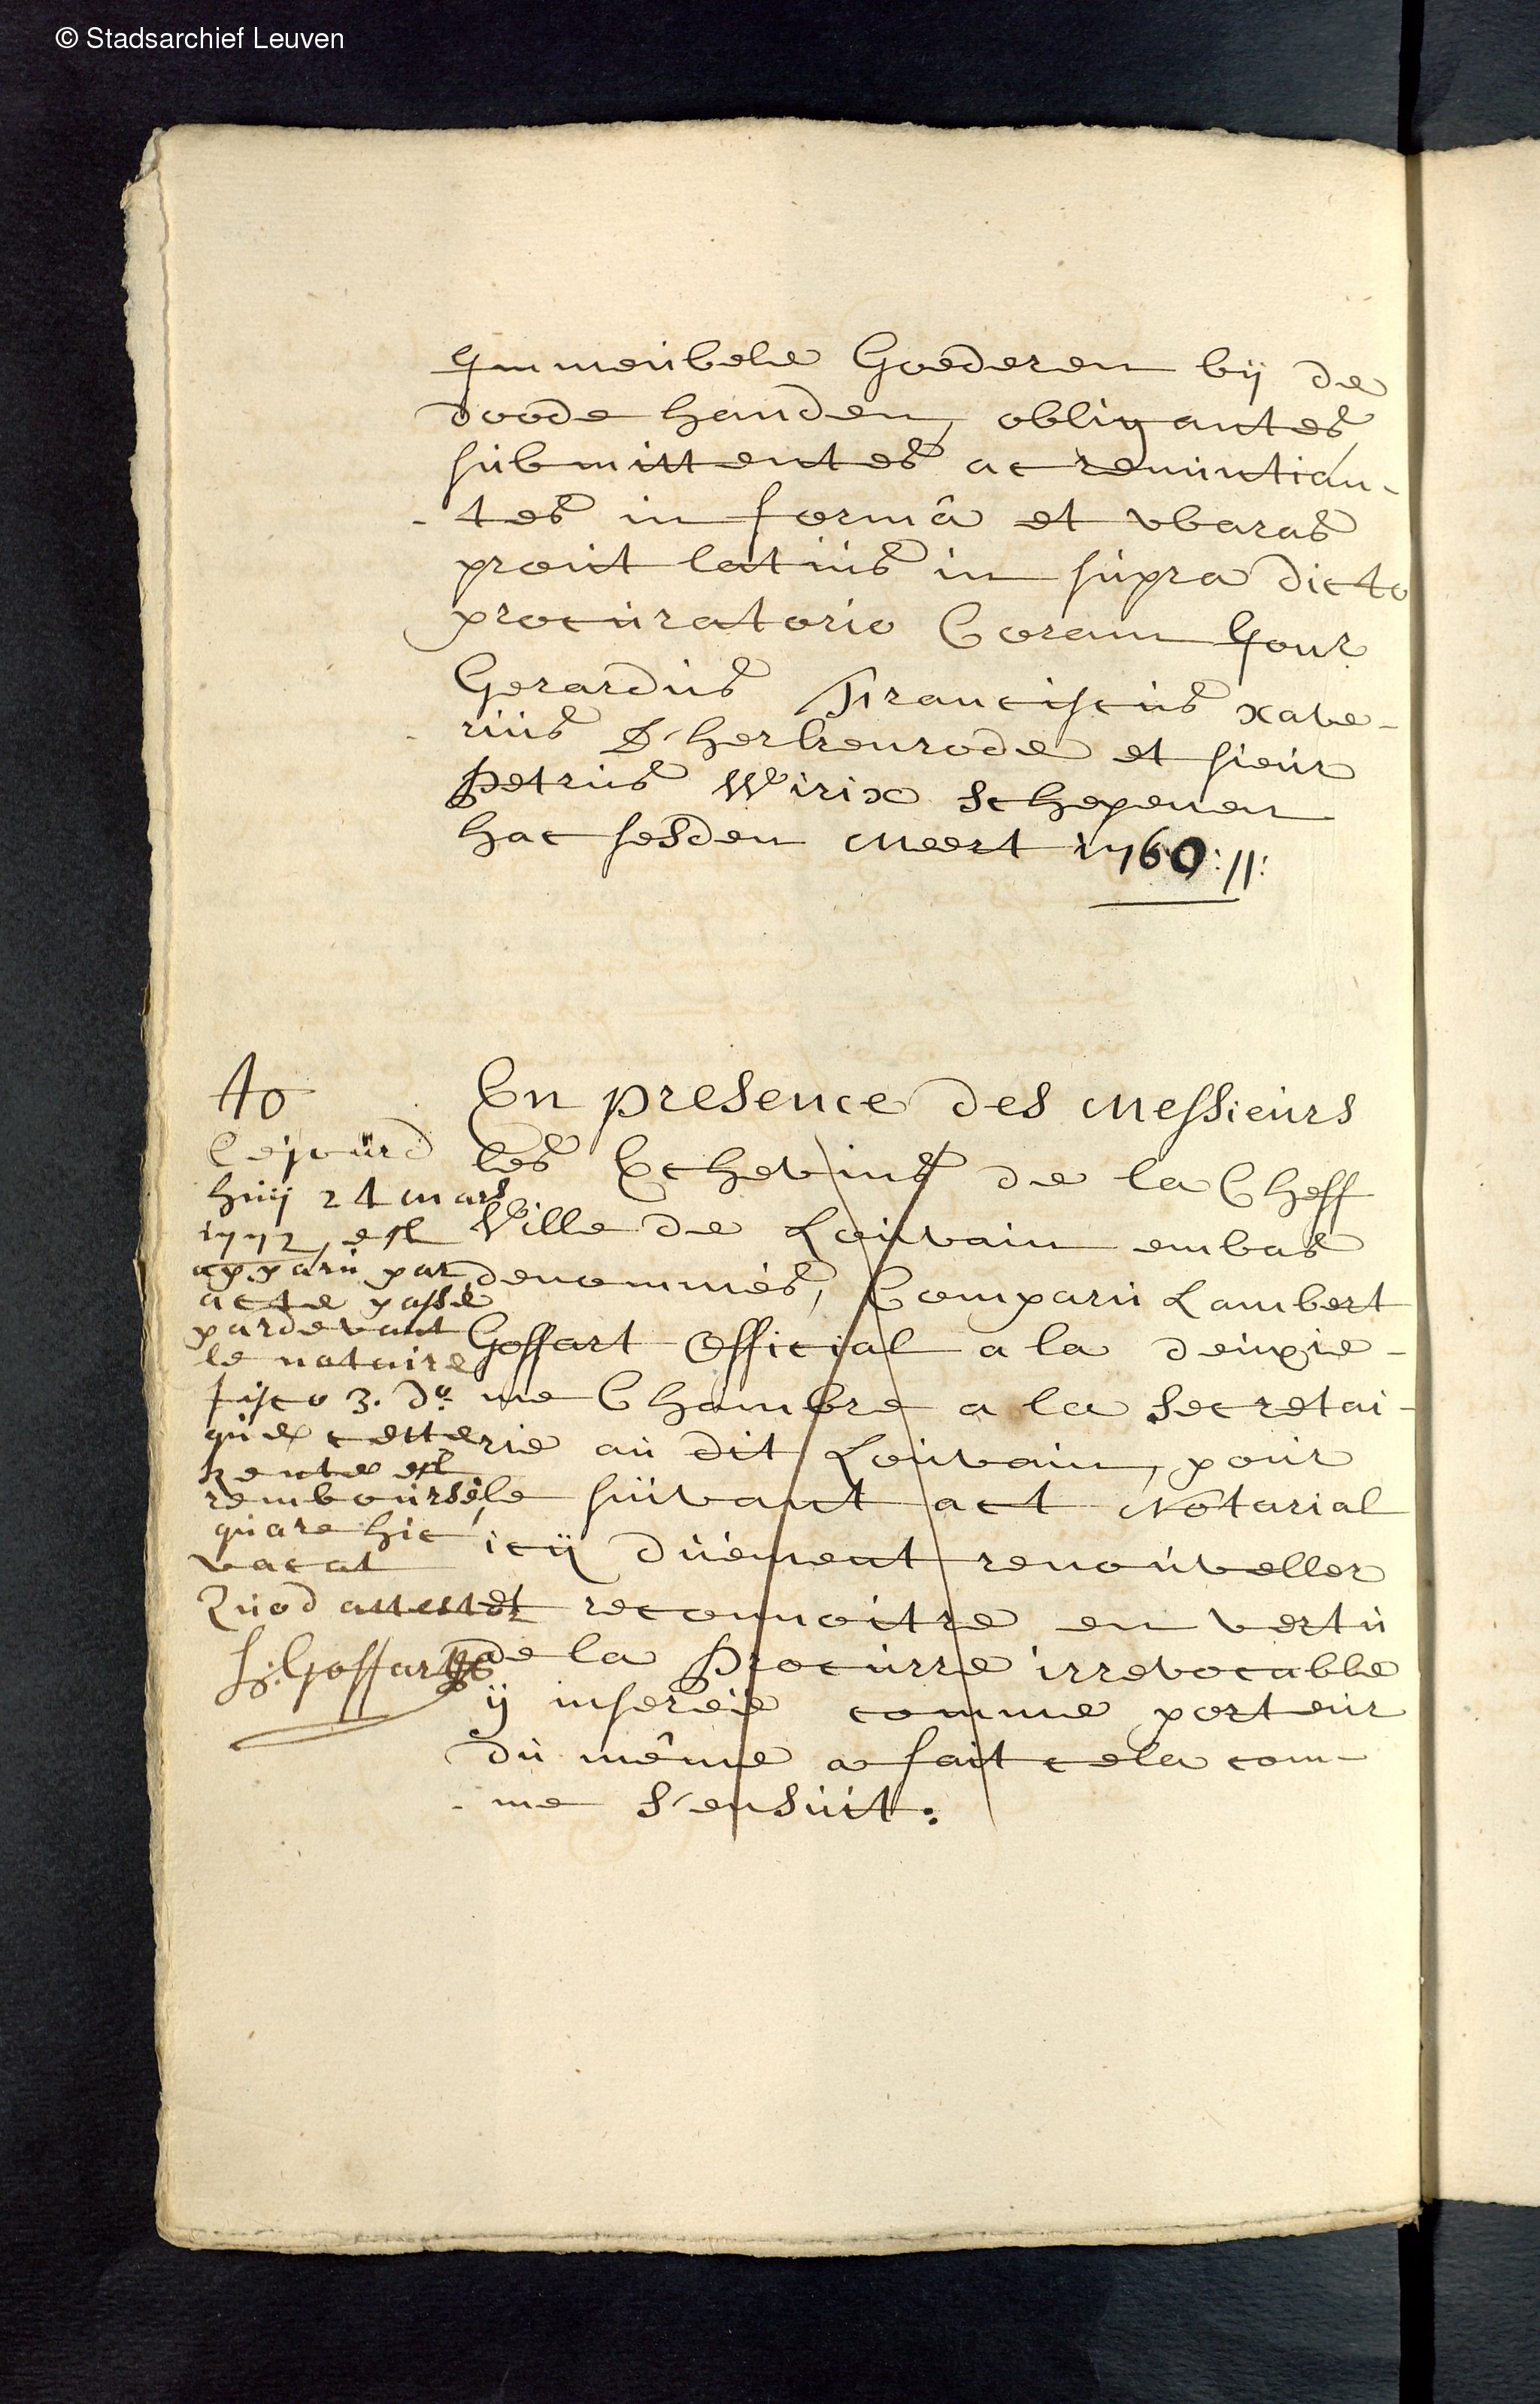 © Stadsarchief Leuven
Immeubele Goederen bij de
doode handen, obligantes
submittentes ac renuntian-
-tes in formâ et ubaras
prout latius in supra dicto
procuratorio Coram Jour
Gerardus Franciscus xave-
-rius D'herckenrode et sieur
Petrus Wirix Schepenen
hac sesden meert 1760://:
Ao
Cejourd
huij 24 mars
1772, est
apparu par
acte passé
pardevant
le notaire
que cette
Rente est
remboursé,
quare hic
vacat
Quod attestor
L: Goffart
En presence des Messieurs
les Echevins de la Cheff
Ville de Louvain embas
denommés, Comparu Lambert
Goffart Official a la deuxie-
me Chambre a la Secretai-
rie au dit Louvain, pour
le suivant act Notarial
icij düement renouveller
et reconnoitre en vertu
de la Procurre irrevocable
ij insereie comme porteur
du même a fait cela com-
-me S'ensuit.